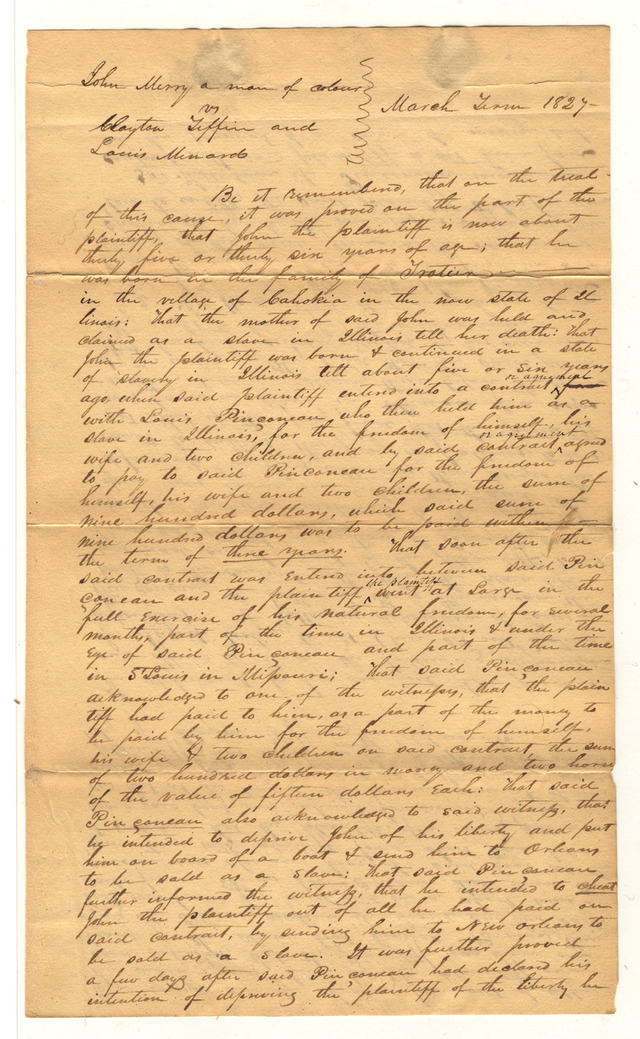 John Merry a man of colour
vs
Clayton Tiffin and
Louis Menard
March Term 1827
Be it remembered, that on the treal
of this cause, it was proved on the part of the
plaintiff, that John the plaintiff is now about
thirty five or thirty six years of age; that he
was born in the family of Trotier
in the village of Cahokia in the now state of Il
linois: That the mother of said John was held and
claimed as a slave in Illinois till her death: That
John the plaintiff was born & continued in a state
of slavery in Illinois till about five or six years
ago, when said plaintiff entered into a contract or agreement
with Louis Pinconeau, who then held him as a
slave in Illinois, for the freedom of himself, his
wife and two children, and by said contract or agreement agreed
to pay to said Pinconeau for the freedom of
himself, his wife and two children, the sum of
nine hundred dollars, which said sum of
nine hundred dollars was to be paid within
the term of three years. That soon after the
said contract was entered into between said Pin
coneau and the plaintiff, the plaintiff went at Large in the
full exercise of his natural freedom, for several
months, part of the time in Illinois & under the
eye of said Pinconeau and part of the time
in St Louis in Missouri; That said Pinconeau
acknowledged to one of the witnesses, that the plain
tiff had paid to him, as a part of the money to
be paid by him for the freedom of himself,
his wife & two children on said contract, the sum
of two hundred dollars in money and two horses
of the value of fifteen dollars each: That said
Pinconeau also acknowledged to said witness, that
he intended to deprive John of his liberty and put
him on board of a boat & send him to Orleans
to be sold as a slave: That said Pinconeau
further informed the witness, that he intended to cheat
John the plaintiff out of all he had paid on
said contract, by sending him to New Orleans to
be sold as a slave. It was further proved
a few days after said Pinconeau had declared his
intention of depriving the plaintiff of the liberty he